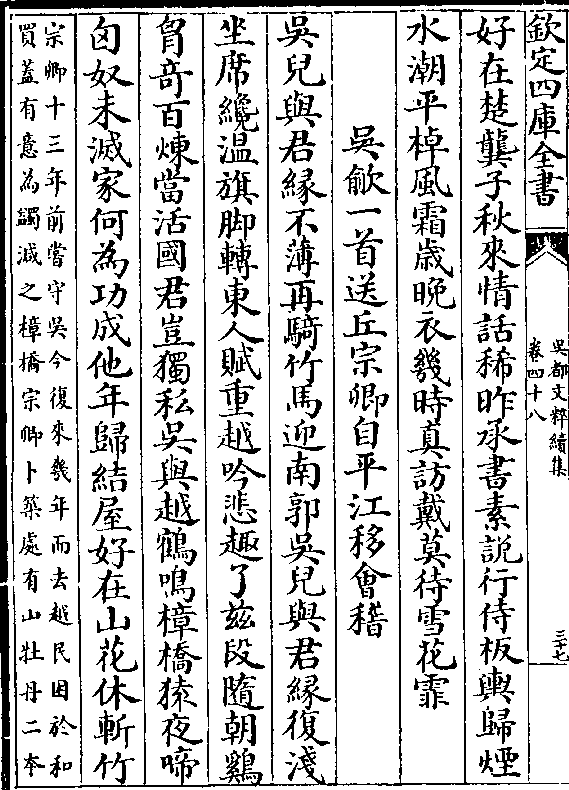 欽定四庫全書
吳都文粹續集
卷四十八
三十七
好在楚龔子秋來情話稀昨承書素説行侍板輿歸煙
水潮平棹風霜歲晚衣幾時真訪戴莫待雪花霏
吳歈一首送丘宗卿自平江移會稽
吳兒與君緣不薄再騎竹馬迎南郭吳兒與君緣復淺
坐席纔溫旗脚轉東人賦重越吟悲趣了兹段隨朝雞
胷奇百煉當活國君豈獨私吳與越鶴鳴樟橋猿夜啼
匈奴未滅家何為功成他年歸結屋好在山花休斬竹
宗卿十三年前嘗守吳今復來幾年而去越民困於和
買蓋有意為蠲減之樟橋宗卿卜築處有山牡丹二本